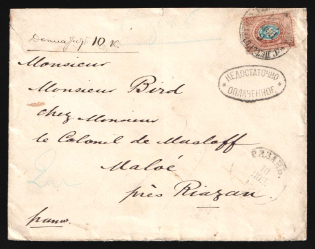 10 к.
НЕДОСТАТОЧНО
ОПЛАЧЕННОЕ
Monsieur
Monsieur Bird
chez Monsieur
le Colonel de Masloff
Maloé
près Riazan
РЯЗАНЬ
franco.